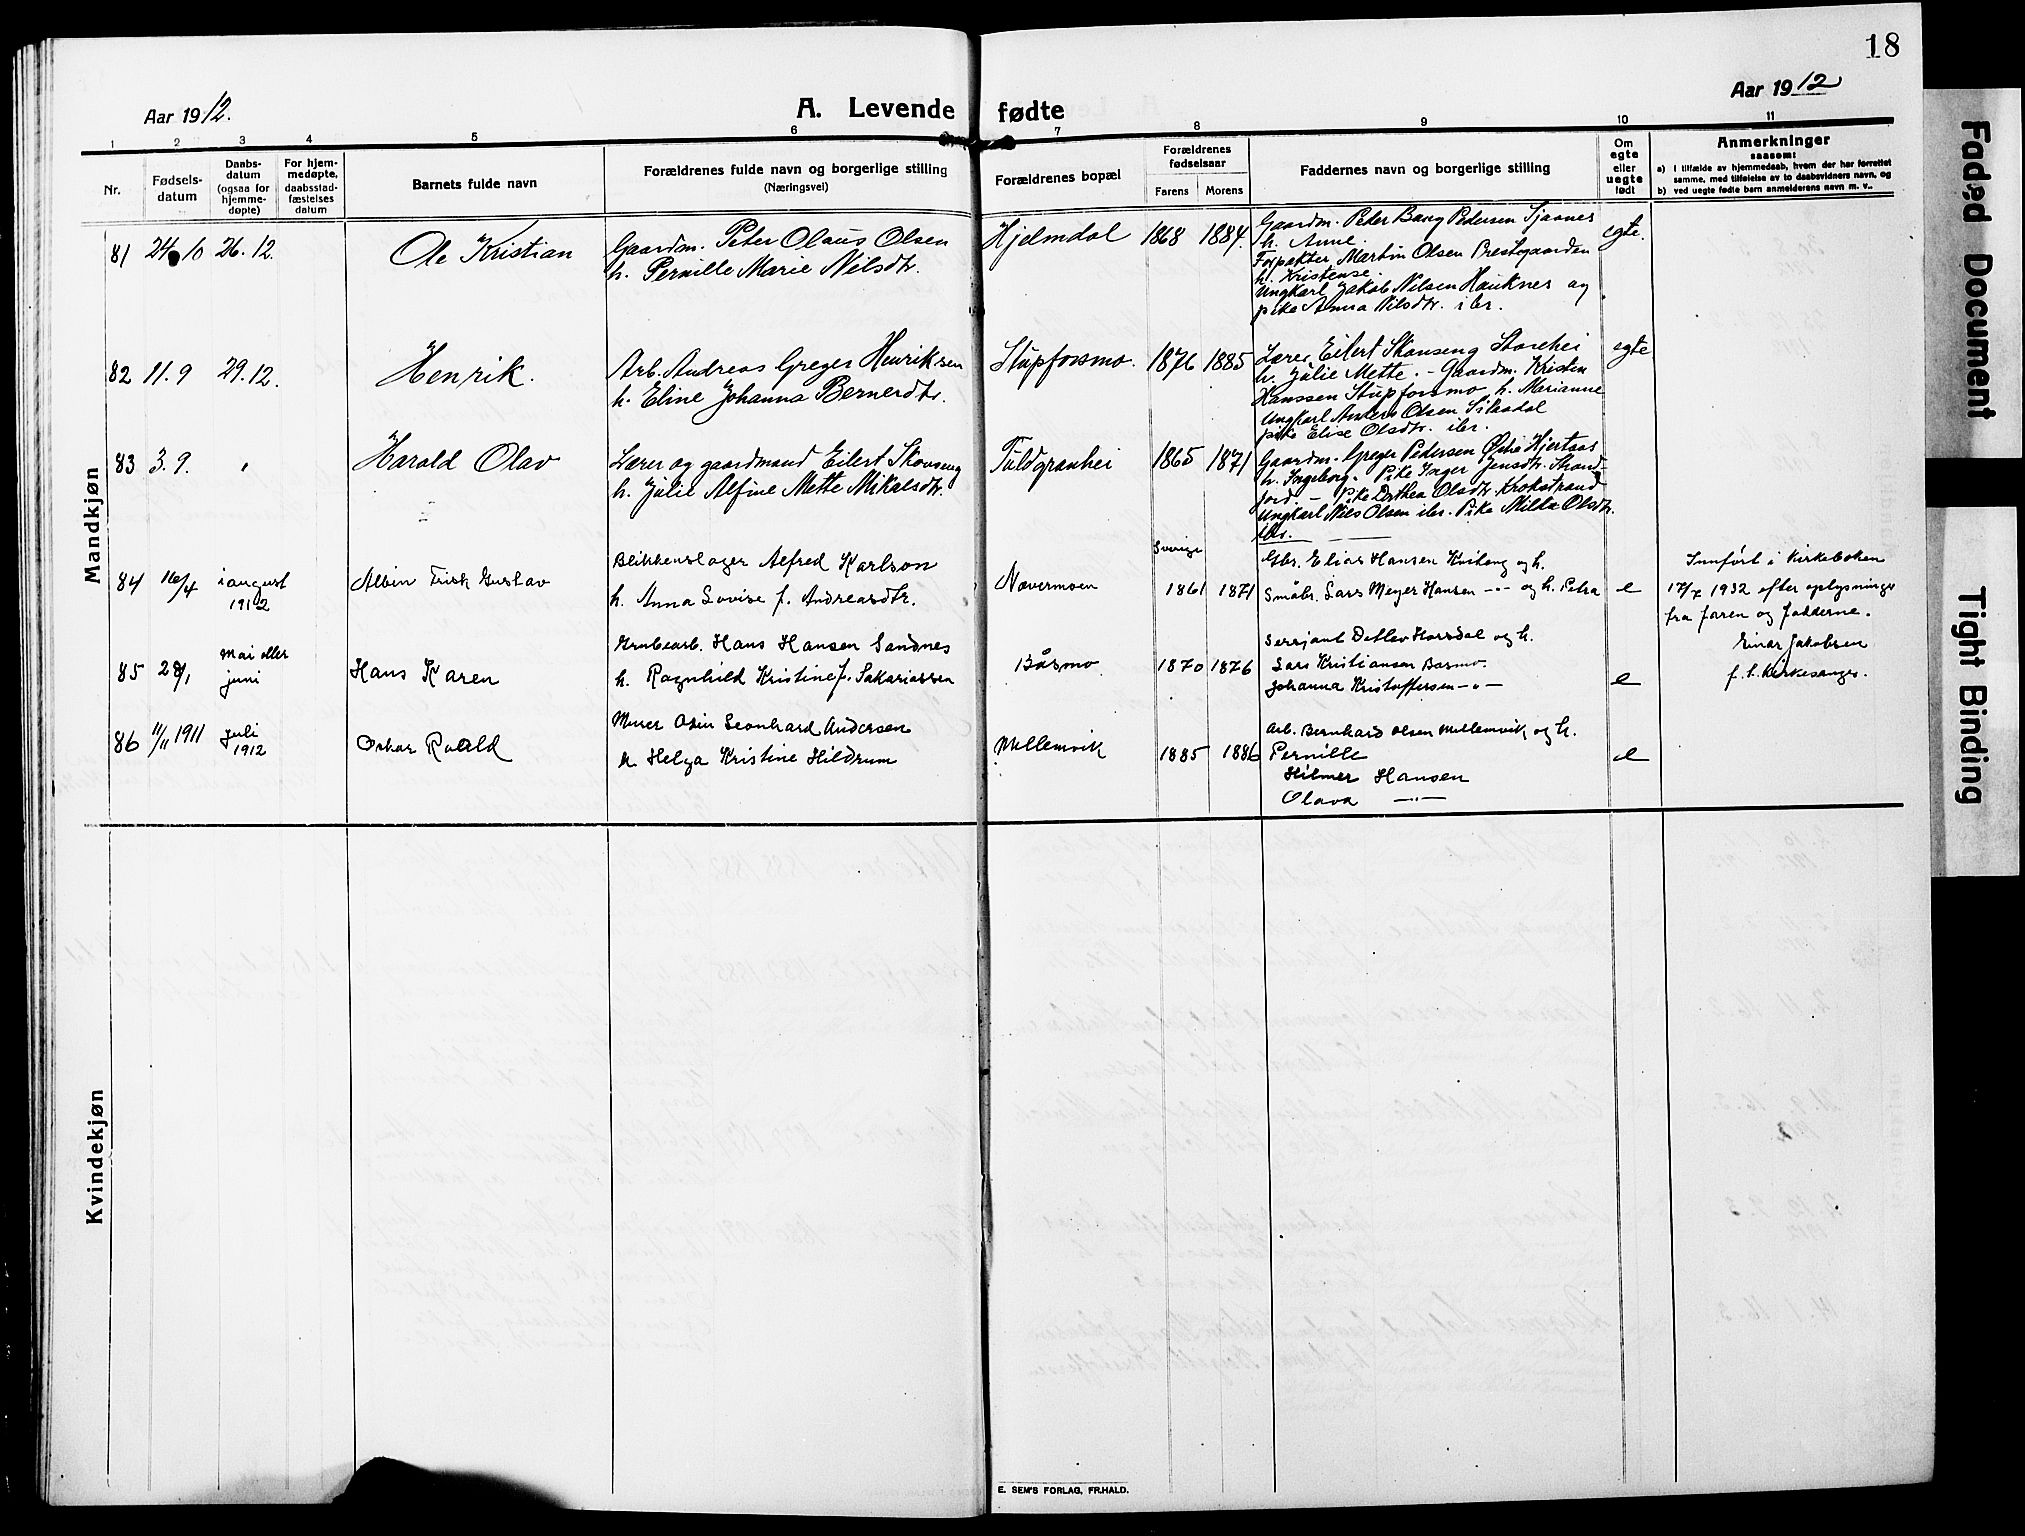 18
Aar 1912.
A. Levende fødte
Aar 1912
1 2 3 4 5 6 7 8 9 10 11
Nr.
Fødsels-
datum
Daabs-
datum
(ogsaa for
hjemme-
døpte)
For hjem-
medøpte,
daabsstad-
fæstelses
datum
Barnets fulde navn
Forældrenes fulde navn og borgerlige stilling
(Næringsvei)
Forældrenes bopæl
Forældrenes
fødselsaar
Farens Morens
Faddernes navn og borgerlige stilling
Om
egte
eller
uegte
født
Anmerkninger
saasom:
a) I tilfælde av hjemmedaab, hvem der har forrettet
samme, med tilføielse av to daabsvidners navn, og
b) ved uegte fødte barn anmelderens navn m. v..
Mandkjøn
81 24 10 26.12.
Ole Kristian
Gaardm. Peter Olaus Olsen
h. Pernille Marie Nilsdtr.
Hjelmdal 1868 1884.
Gaardm. Peter Bang Pedersen Sjaanes
h. Anne.
Forpakter Martin Olsen Prestegaarden
h. Kristense.
Ungkarl Jakob Nilsen Hauknes og
pike Anna Nilsdtr. ibr.
egte.
82 11.9 29.12.
Henrik.
Arb. Andreas Greger Henriksen
h. Eline Johanna Bernerdtr.
Stupforsmo. 1876 1885
Lærer Eilert Skonseng Storehei
h. Julie Mette. - Gaardm. Kristin
Hanssen Stupforsmo, h. Marianne
Ungkarl Anders Olsen
pike Elise Olsdtr. ibr.
egte
83 3.9. "
Harald Olav
Lærer og gaardmand Eilert Skonseng
h. Julie Alfine Mette Mikalsdtr.
Tuldgranhei 1865 1871
Gaardm. Greger Pedersen Østre Hjertaas
h. Ingeborg. Pike Inger Jensdtr. Strand-
jord - Pike Dorthea Olsdtr. Krokstrand
Ungkarl Nils Olsen ibr. Pike Milda Olsdtr.
ibr.
84 16/4 i august
1912
Albin Frisk Gustav
Blikkenslager Alfred Karlson
h. Anna Lovise f. Andreasdtr.
Nævermoen
Sverige
1861 1871
Gbr. Elias Hansen Kviteng og h.
Småbr. Lars Meyer Hansen -"- og h. Petra
e
Innført i kirkeboken
17/7 1932 efter oplysninger
fra faren og fadderne.
Einar Jakobsen
f. t. kirkesanger.
85 28/1 Mai eller
juni
Hans Karen
Grubearb. Hans Hansen Sandnes
h. Ragnhild Kristine f. Sakariassen
Båsmo 1870 1876
Serjant Detlev Horsdal og h.
Lars Kristiansen Basmo.
Johanna Kristoffersen -"-
e
86 11/11 1911 Juli
1912
Oskar Roald
Murer Odin Leonhard Andersen
h. Helga Kristine Hildrum
Mellemvik 1885 1886
Arb. Bernhard Olsen Mellemvik og h.
Pernille
Hilmer Hansen
Olava -"-
e
Kvindekjøn
E. SEM'S FORLAG, FR.HALD.
Faded Document
Tight Binding